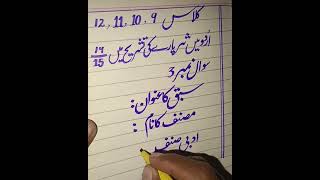 کلاس 9 ،10 ،11 ،12
اردو میں نثر پارے کی تشریح میں 14/15
سوال نمبر 3
سبق کا عنوان :
مصنف کا نام :
ادبی صنف